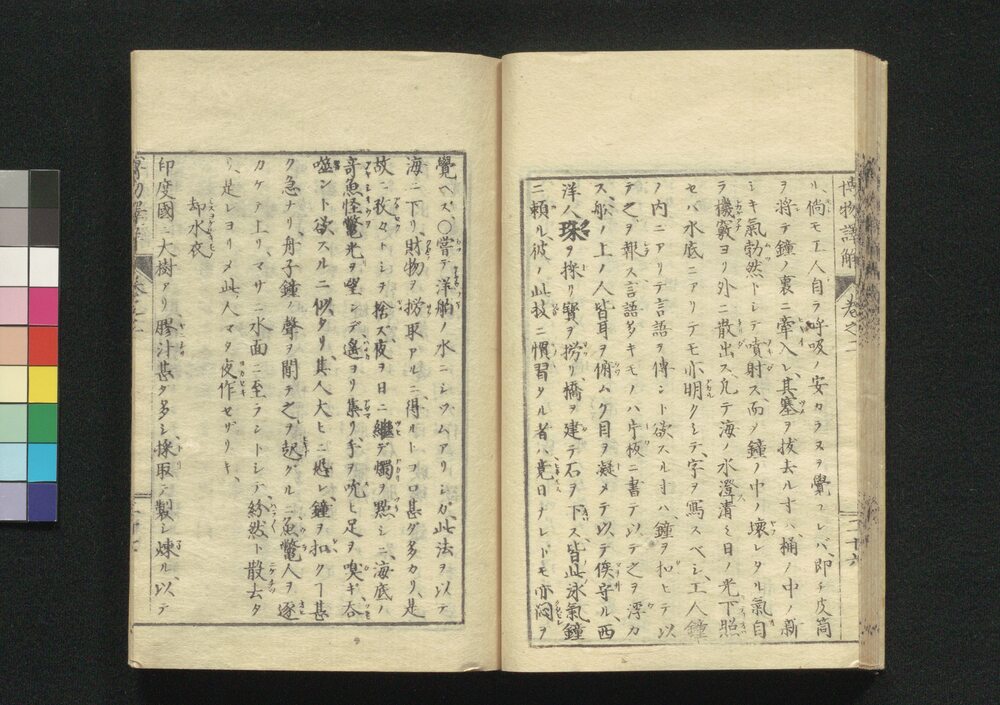 博物譯解 卷之二 二十六
ル、倘モ工人自ラ呼吸ノ安カラヌヲ覺フレバ、即チ皮筒
ヲ將テ鐘ノ裏ニ牽入レ、其塞ヲ拔去ル寸ハ、桶ノ中ノ新
シキ氣勃然トシテ噴射ス、而〆鐘ノ中ノ壞レタル氣自
ラ機竅ヨリ外ニ散出ス、凢テ海ノ水澄清ミ日ノ光下照
セバ水底ニアリテモ亦明クシテ、字ヲ寫スベシ、工人鐘
ノ内ニアリテ言語ヲ傳ント欲スル寸ハ鐘ヲ扣ヒテ以
テ之ヲ報ス、言語多キモノハ片板ニ書テ以テ之ヲ浮カ
ス、船ノ上ノ人皆耳ヲ俯ムク目ヲ凝メテ以テ俟守ル、西
洋人珠ヲ採リ寳ヲ撈リ橋ヲ建テ石ヲ下ス、皆此泳氣鐘
ニ頼ル、彼ノ此技ニ慣習タル者ハ竟日ナレドモ亦悶ヲ
覺ヘズ、〇嘗テ洋舶ノ水ニシヅムアリシガ、此法ヲ以テ
海ニ下リ、財物ヲ撈取アルニ、得ルトコロ甚グ多カリ、是
故ニ孜々トシテ捨ズ、夜ヲ日ニ繼デ燭ヲ點シニ、海底ノ
奇魚怪鼈光ヲ望ンデ遙ヨリ集リ、手ヲ吮ヒ足ヲ嗅ギ、呑
噬ント欲スルニ似タリ、其人大ヒニ恐レ鐘ヲ扣クヿ甚
ク急ナリ、舟子鐘ノ聲ヲ聞テ之ヲ起グルニ、魚鼈人ヲ逐
カケテ上リ、マサニ水面ニ至ラントシテ、紛然ト散去タ
リ、是レヨリ〆此人マタ夜作セザリキ、
却水衣
印度國ニ大樹アリ、膠汁甚タ多シ、採取テ製シ煉ル、以テ